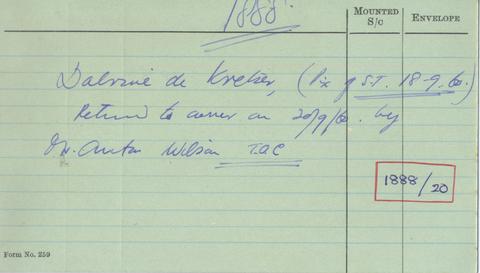 1888.
MOUNTED S/C
ENVELOPE
de Kretser, (Pix of S.T. 18-9-60.)
Return to owner on 20/9/60. by
Mr. Anton Wilson T.O.C
1888/20
Form No. 259